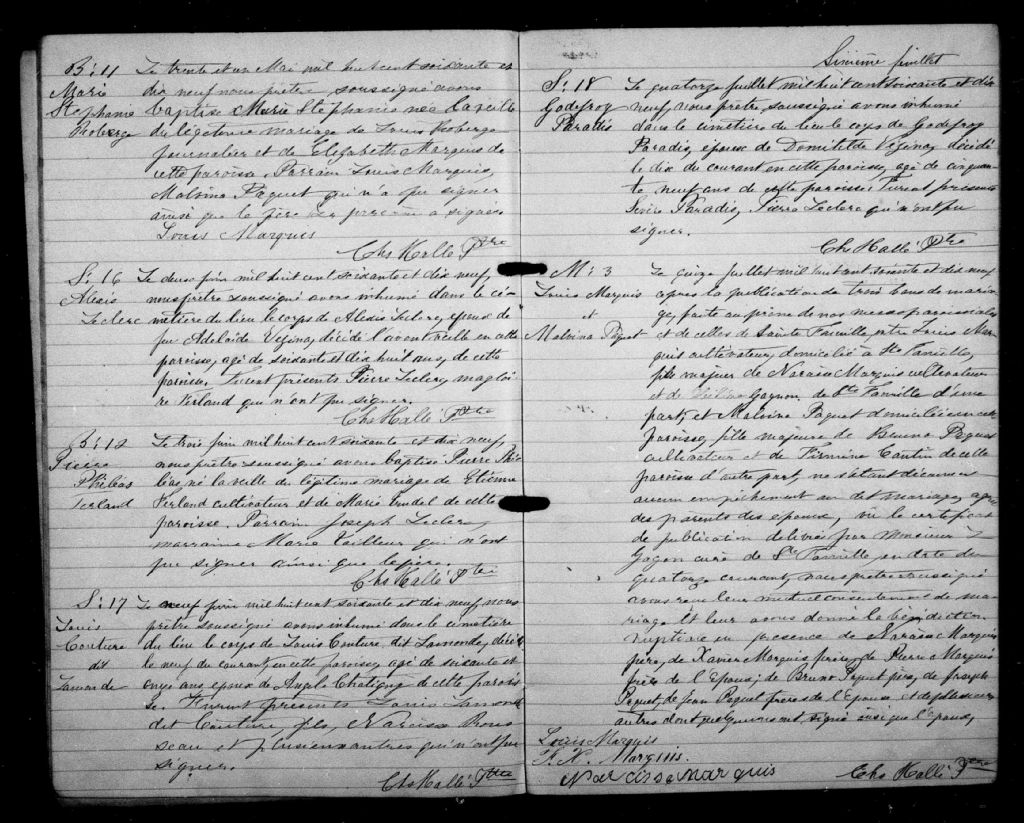 B: 11
Marie
Stephanie
Roberge
Le trente et un Mai mil huit cent soixante et
dix neuf nous prêtre soussigné avons
baptisé Marie Stephanie née la veille
du légitime mariage de Louis Roberge
journalier et de Elizabeth Marquis de
cette paroisse. Parrain Louis Marquis,
Malvina Paquet qui n'a pu signer
ainsi que le père le parrain a signé
Louis Marquis
Chs Hallé Ptre
S: 16
Alexis
Leclerc
Le deux juin mil huit cent soixante et dix neuf,
nous prêtre soussigné avons inhumé dans le ci-
metière du lieu le corps de Alexis Leclerc, epoux de
feu Adelaide Vezina, décédé l'avant veille en cette
paroisse, agé de soixante et dix huit ans, de cette
paroisse. Furent présents Pierre Leclerc, magloi-
re Ferland qui n'ont pu signer.
Chs Hallé Ptre
B: 12
Pierre
Philéas
Ferland
Le trois juin mil huit cent soixante et dix neuf,
nous prêtre soussigné avons baptisé Pierre Phi-
léas, né la veille du légitime mariage de Etienne
Ferland cultivateur et de Marie Trudel de cette
paroisse. Parrain Joseph Leclerc,
marraine Marie Vailleur qui n'ont
pu signer ainsi que le père.
Chs Hallé Ptre
S: 17
Louis
Couture
dit
Lamonde
Le neuf juin mil huit cent soixante et dix neuf, nous
prêtre soussigné avons inhumé dans le cimetière
du lieu le corps de Louis Couture dit Lamonde, décédé
le neuf du courant, en cette paroisse, agé de soixante et
onze ans epoux de Angele Chatigny de cette parois-
se. Furent presents Louis Lamonde
dit Couture, fils, Narcisse Rous
seau et plusieurs autres qui n'ont pu
signer.
Chs Hallé Ptre
juillet
S: 18
Godefroy
Paradis
Le quatorze juillet mil huit cent soixante et dix
neuf, nous prêtre soussigné avons inhumé
dans le cimetière du lieu le corps de Godefroy
Paradis, epoux de Domitilde Vézina, décédé
le dix du courant en cette paroisse, agé de cinquan-
te neuf ans de cette paroisse. Furent présents
Paradis, Pierre Leclerc qui n'ont pu
signer.
Chs Hallé Ptre
M: 3
Louis Marquis
et
Malvina Paquet
Le quinze juillet mil huit cent soixante et dix neuf
après la publication de trois bans de maria-
ge, faite au prône de nos messes paroissiales
et de celles de Sainte Famille, entre Louis Mar-
quis cultivateur, domicilié à Ste Famille,
fils majeur de Narcisse Marquis cultivateur
et de Gagnon, de Ste Famille d'une
part, et Malvina Paquet domiciliée en cette
paroisse, fille majeure de Bruno Paquet
cultivateur et de Firmine Cantin de cette
paroisse d'autre part, ne s'étant découvert
aucun empêchement au dit mariage,
des parents des epoux, vu le certificat
de publication délivré par Monsieur
Gagnon curé de Ste Famille, en date du
quatorze courant, nous prêtre soussigné
avons reçu leur mutuel consentement de ma-
riage et leur avons donné la bénédiction
nuptiale en presence de Narcisse Marquis
père, de Xavier Marquis frère, de Pierre Marquis
frère de l'Epoux; de Bruno Paquet père, de Joseph
Paquet, de Jean Paquet freres de l'Epouse et de plusieurs
autres dont quelques uns ont signé ainsi que l'epoux,
Louis Marquis
F. X. Marquis.
Narcisse marquis
Chs Hallé Ptre